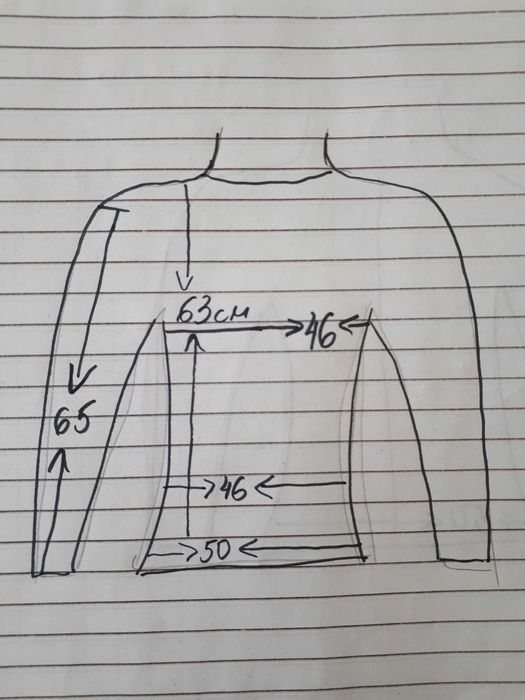 63см
46
65
46
50